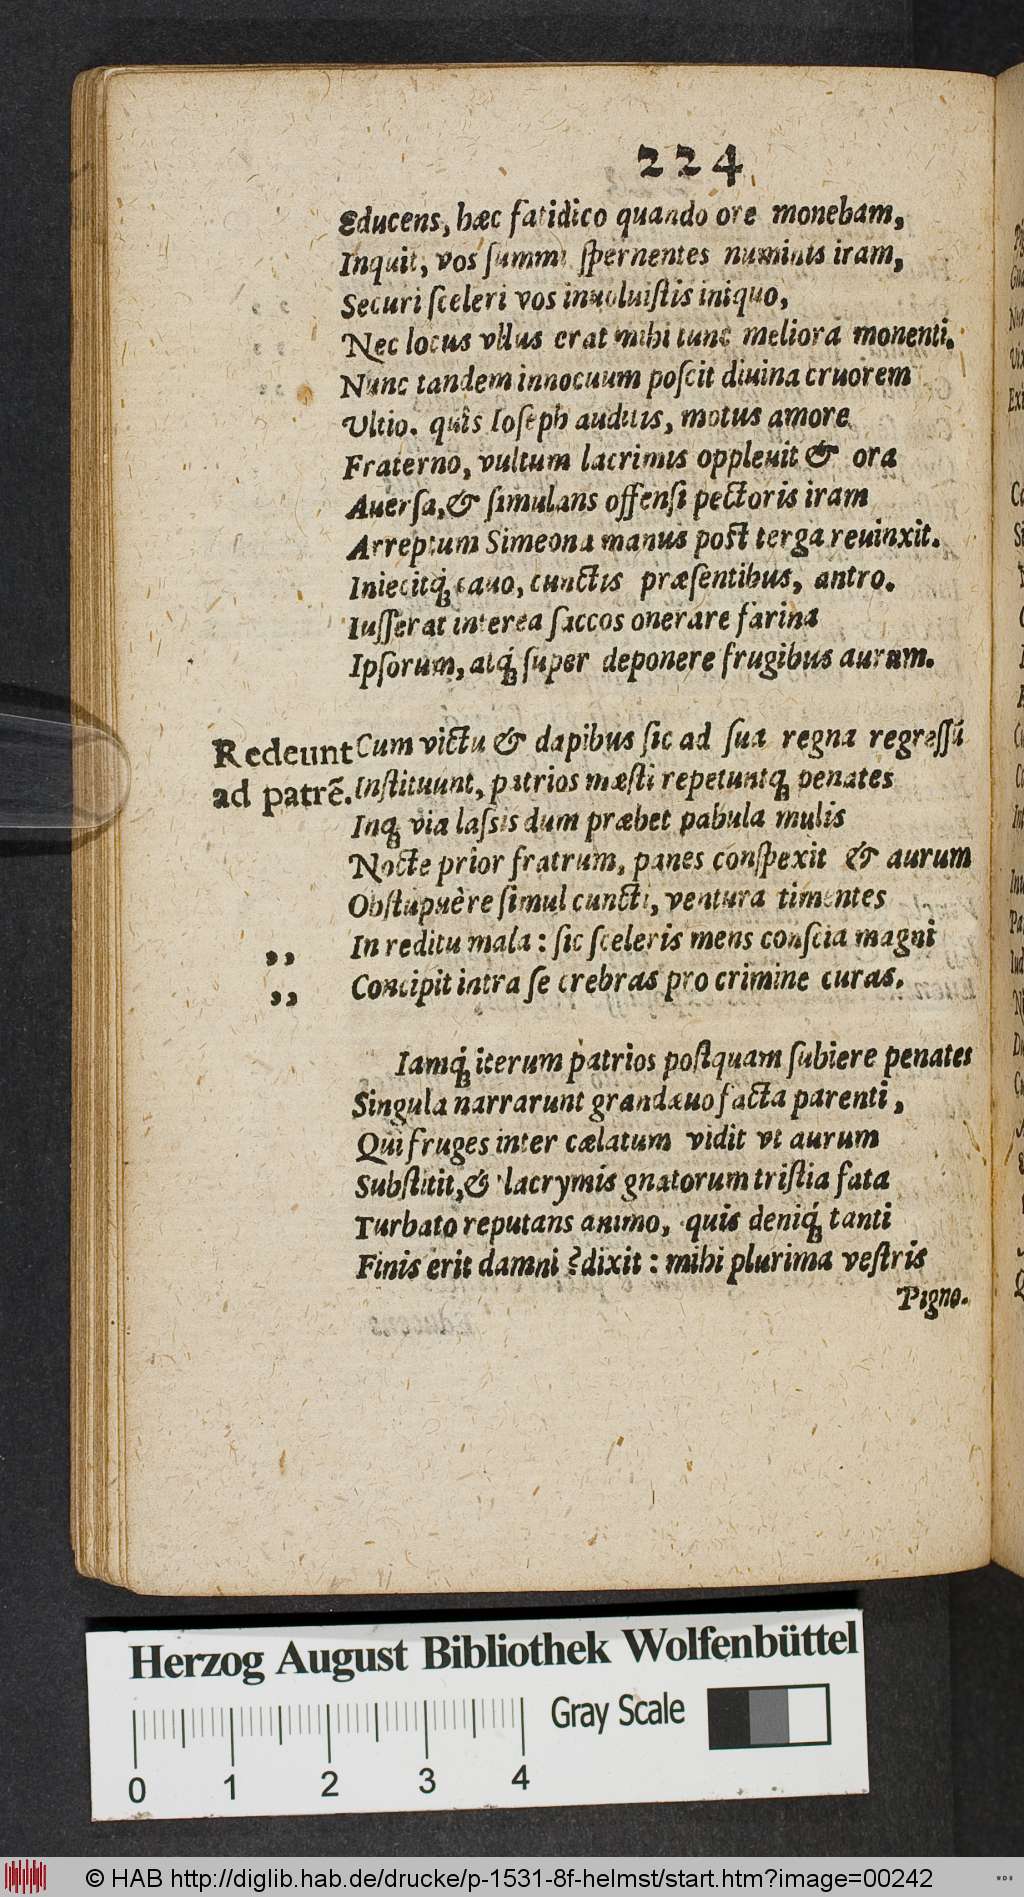 224
Educens, hæc fatidico quando ore monebam,
Inquit, vos summi spernentes numinis iram,
Securi sceleri vos inuoluistis iniquo,
Nec locus vllus erat mihi tunc meliora monenti.
Nunc tandem innocuum poscit diuina cruorem
Vltio. quîs Ioseph auditis, motus amore
Fraterno, vultum lacrimis oppleuit & ora
Auersa, & simulans offensi pectoris iram
Arreptum Simeona manus post terga reuinxit.
Iniecitq́; cauo, cunctis præsentibus, antro.
Iusserat interea saccos onerare farina
Ipsorum, atq́; super deponere frugibus aurum.
Redeunt ad patrē.
Cum victu & dapibus sic ad sua regna regressū
Instituunt, patrios mæsti repetuntq; penates
Inq; via lassis dum præbet pabula mulis
Nocte prior fratrum, panes conspexit & aurum
Obstupuère simul cuncti, ventura timentes
,, In reditu mala: sic sceleris mens conscia magni
,, Concipit intra se crebras pro crimine curas.
Iamq́; iterum patrios postquam subiere penates
Singula narrarunt grandæuo facta parenti,
Qui fruges inter cælatum vidit vt aurum
Substitit, & lacrymis gnatorum tristia fata
Turbato reputans animo, quis deniq́; tanti
Finis erit damni? dixit: mihi plurima vestris
Pigno-
Herzog August Bibliothek Wolfenbüttel
Gray Scale
0 1 2 3 4
© HAB http://diglib.hab.de/drucke/p-1531-8f-helmst/start.htm?image=00242